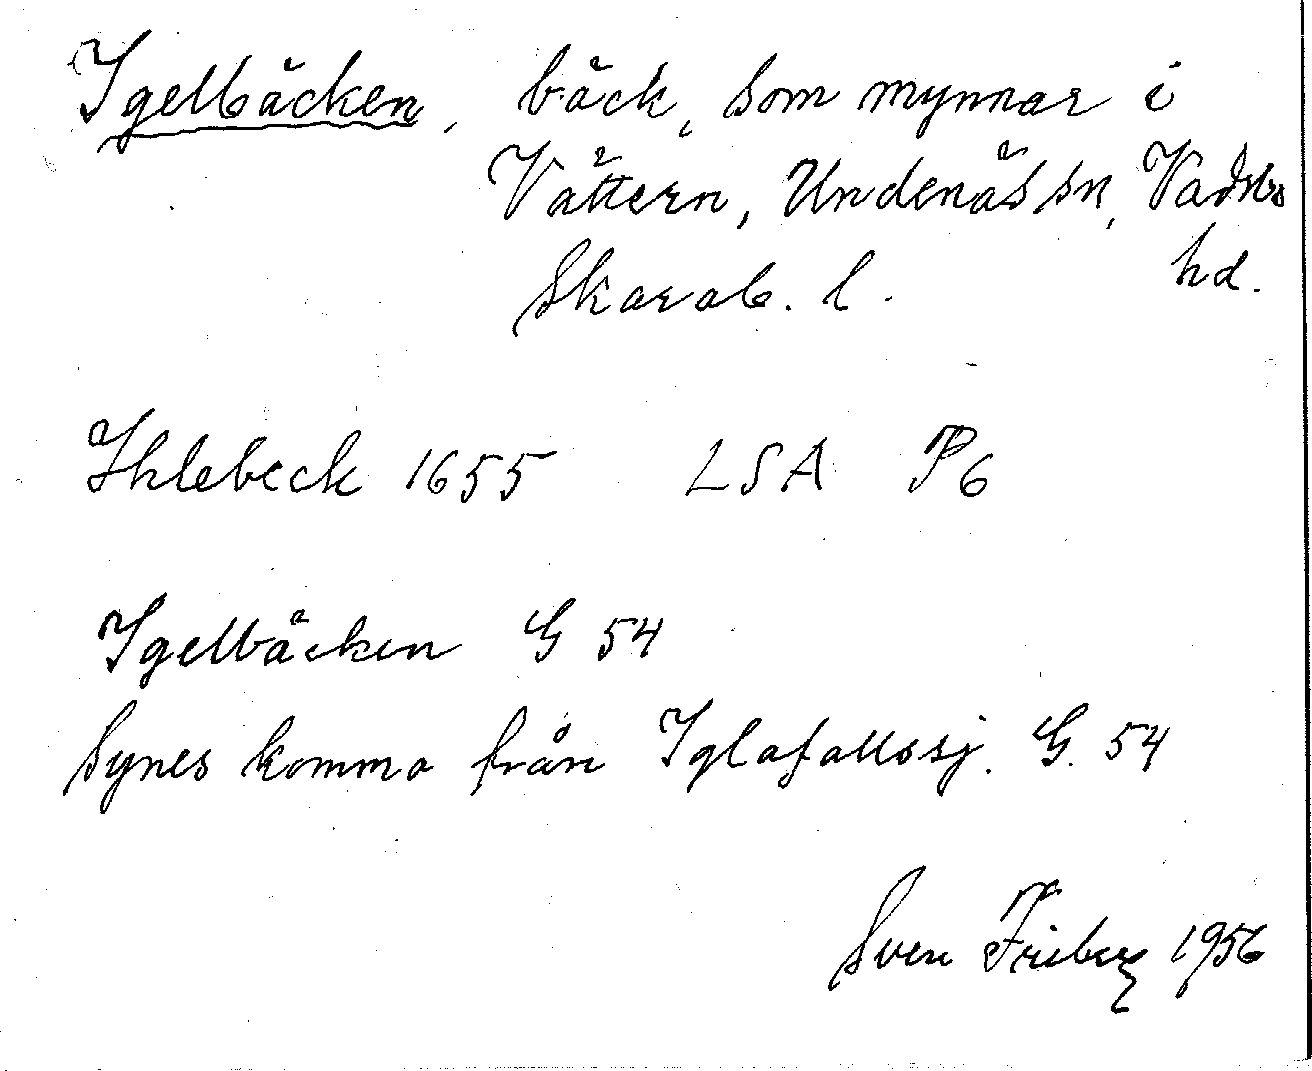 Igelbäcken, bäck, som mynnar i
Vättern, Undenäs sn, Vadsbo
Skarab. l. hd.
Ihlebeck 1655 LSA P6
Igelbäcken G 54
Synes komma från Iglafallssj. G. 54
Sven Friberg 1956